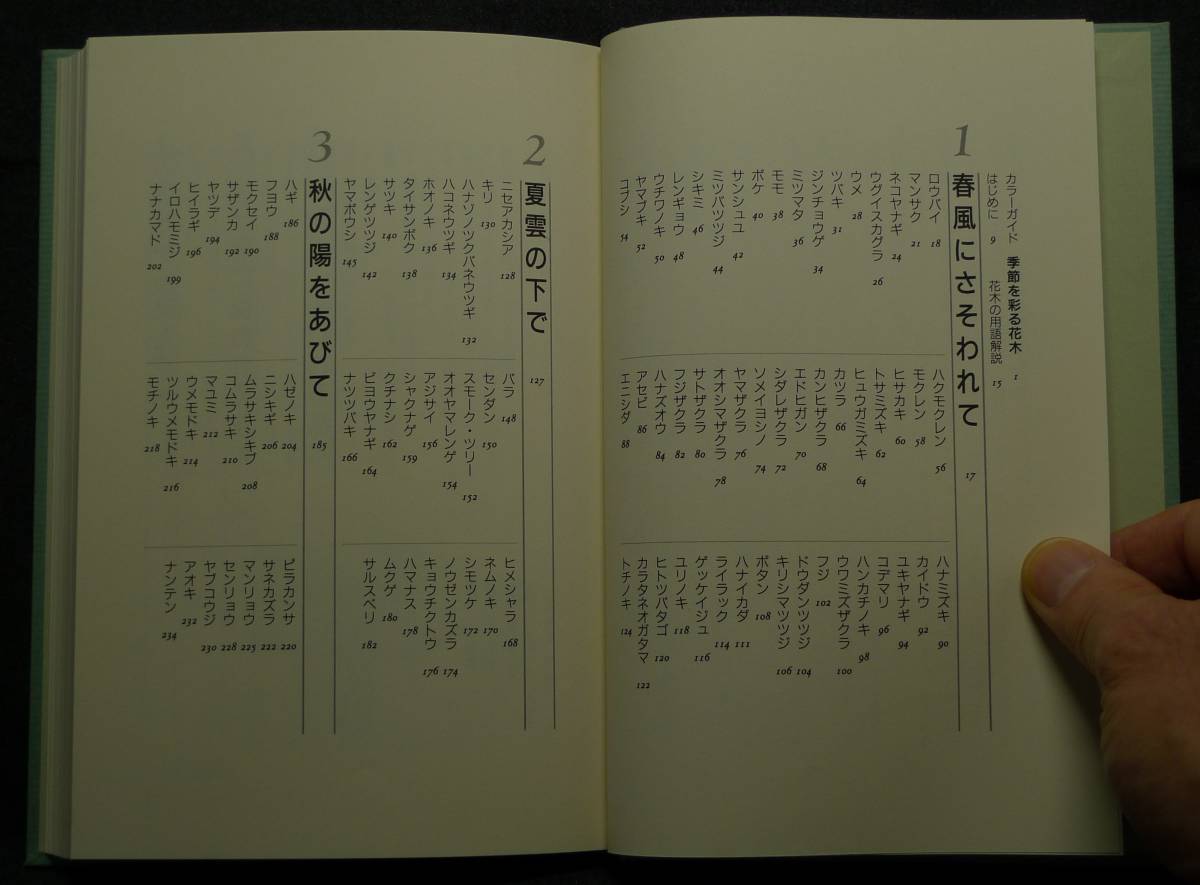 カラーガイド 季節を彩る花木 1
はじめに 9 花木の用語解説 15
1 春風にさそわれて 17
ロウバイ 18
マンサク 21
ネコヤナギ 24
ウグイスカグラ 26
ウメ 28
ツバキ 31
ジンチョウゲ 34
ミツマタ 36
モモ 38
ボケ 40
サンシュユ 42
ミツバツツジ 44
シキミ 46
レンギョウ 48
ウチワノキ 50
ヤマブキ 52
コブシ 54
ハクモクレン 56
モクレン 58
ヒサカキ 60
トサミズキ 62
ヒュウガミズキ 64
カツラ 66
カンヒザクラ 68
エドヒガン 70
シダレザクラ 72
ソメイヨシノ 74
ヤマザクラ 76
オオシマザクラ 78
サトザクラ 80
フジザクラ 82
ハナズオウ 84
アセビ 86
エニシダ 88
ハナミズキ 90
カイドウ 92
ユキヤナギ 94
コデマリ 96
ハンカチノキ 98
ウワミズザクラ 100
フジ 102
ドウダンツツジ 104
キリシマツツジ 106
ボタン 108
ハナイカダ 111
ライラック 114
ゲッケイジュ 116
ユリノキ 118
ヒトツバタゴ 120
カラタネオガタマ 122
トチノキ 124
2 夏雲の下で 127
ニセアカシア 128
キリ 130
ハナゾノツクバネウツギ 132
ハコネウツギ 134
ホオノキ 136
タイサンボク 138
サツキ 140
レンゲツツジ 142
ヤマボウシ 145
バラ 148
センダン 150
スモーク・ツリー 152
オオヤマレンゲ 154
アジサイ 156
シャクナゲ 159
クチナシ 162
ビヨウヤナギ 164
ナツツバキ 166
ヒメシャラ 168
ネムノキ 170
シモツケ 172
ノウゼンカズラ 174
キョウチクトウ 176
ハマナス 178
ムクゲ 180
サルスベリ 182
3 秋の陽をあびて 185
ハギ 186
フヨウ 188
モクセイ 190
サザンカ 192
ヤツデ 194
ヒイラギ 196
イロハモミジ 199
ナナカマド 202
ハゼノキ 204
ニシキギ 206
ムラサキシキブ 208
コムラサキ 210
マユミ 212
ウメモドキ 214
ツルウメモドキ 216
モチノキ 218
ピラカンサ 220
サネカズラ 222
マンリョウ 225
センリョウ 228
ヤブコウジ 230
アオキ 232
ナンテン 234